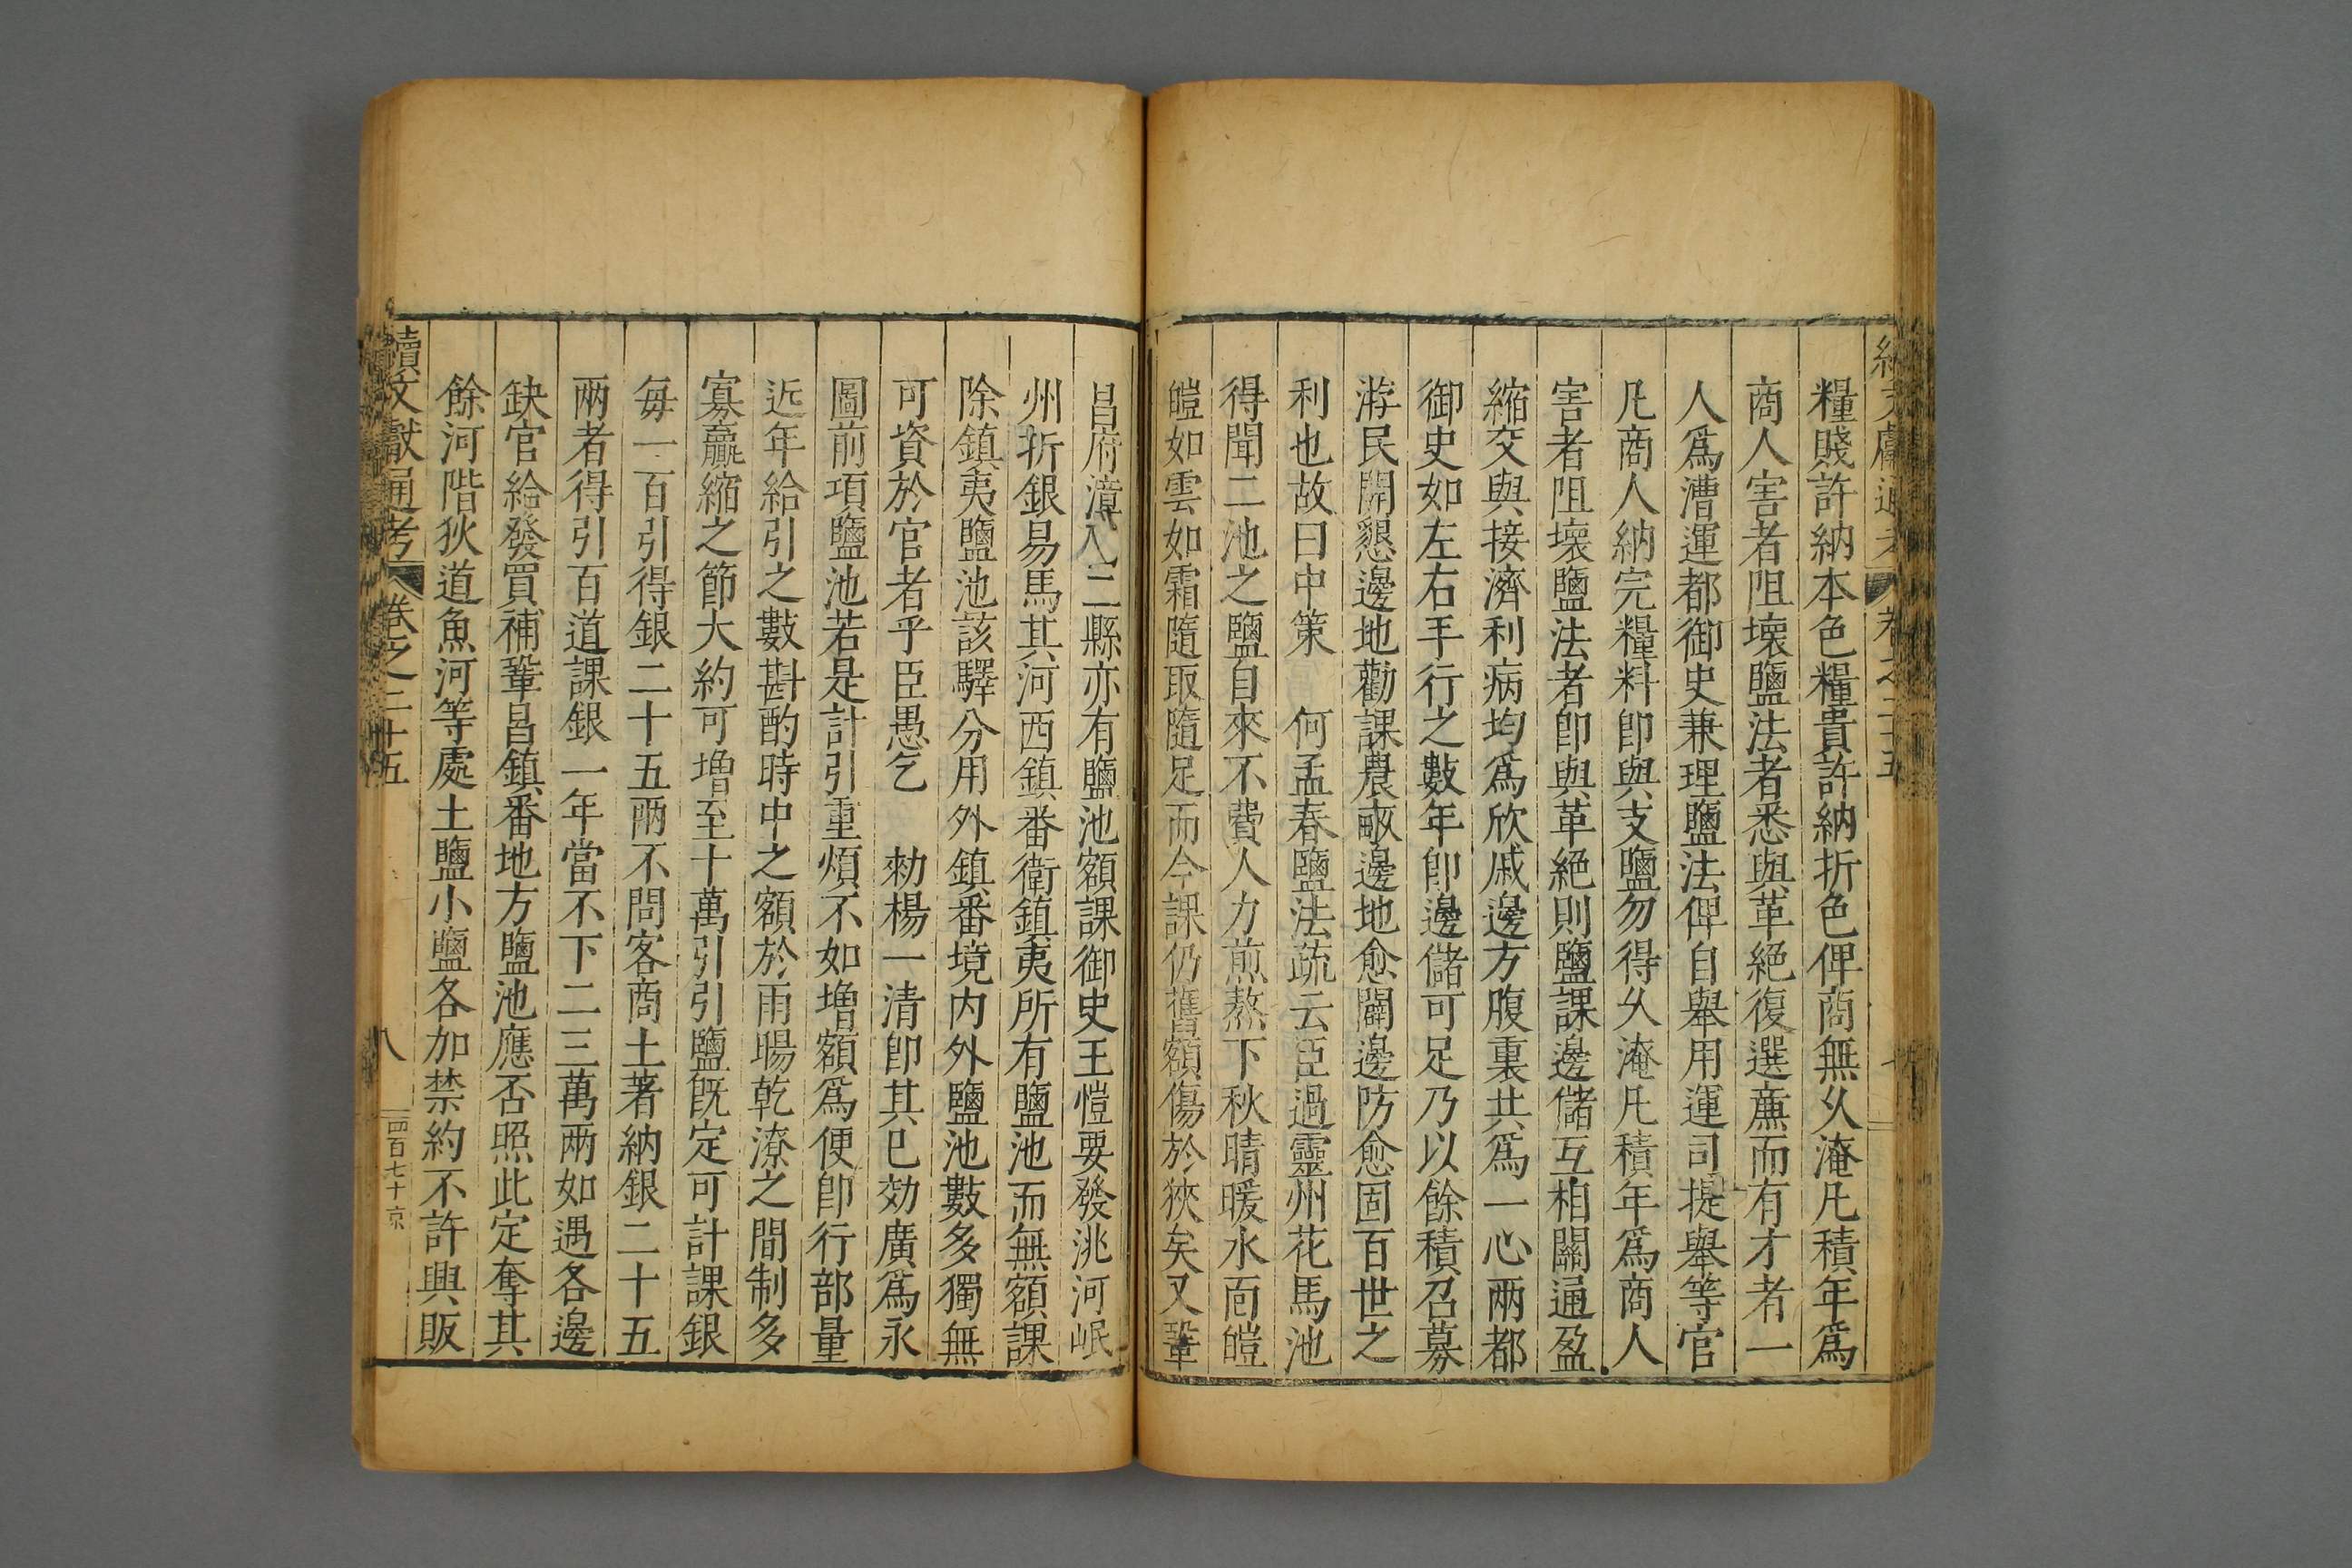 續文獻通考 卷之二十五
糧賤許納本色糧貴許納折色俾商無久淹凡積年爲
商人害者阻壞鹽法者悉與革絕復選廉而有才者一
人爲漕運都御史兼理鹽法俾自舉用運司提舉等官
凡商人納完糧料卽與支鹽勿得久淹凡積年爲商人
害者阻壞鹽法者卽與革絕則鹽課邊儲互相關通盈
縮交與接濟利病均爲欣戚邊方腹裏共爲一心兩都
御史如左右手行之數年卽邊儲可足乃以餘積召募
游民開懇邊地勸課農畝邊地愈闢邊防愈固百世之
利也故曰中策 何孟春鹽法疏云臣過靈州花馬池
得聞二池之鹽自來不費人力煎熬下秋晴暖水面皚
皚如雲如霜隨取隨足而今課仍舊額傷於狹矣又鞏
昌府漳人二縣亦有鹽池額課御史王愷要發洮河岷
州折銀易馬其河西鎮番衛鎮夷所有鹽池而無額課
除鎮夷鹽池該驛分用外鎮番境内外鹽池數多獨無
可資於官者乎臣愚乞 勑楊一清卽其已効廣爲永
圖前項鹽池若是計引重煩不如增額爲便卽行部量
近年給引之數斟酌時中之額於雨暘乾潦之間制多
寡贏縮之節大約可增至十萬引引鹽旣定可計課銀
每一百引得銀二十五兩不問客商土著納銀二十五
兩者得引百道課銀一年當不下二三萬兩如遇各邊
缺官給發買補鞏昌鎮番地方鹽池應否照此定奪其
餘河階狄道魚河等處土鹽小鹽各加禁約不許興販
續文獻通考 卷之二十五 八 四百七十 京